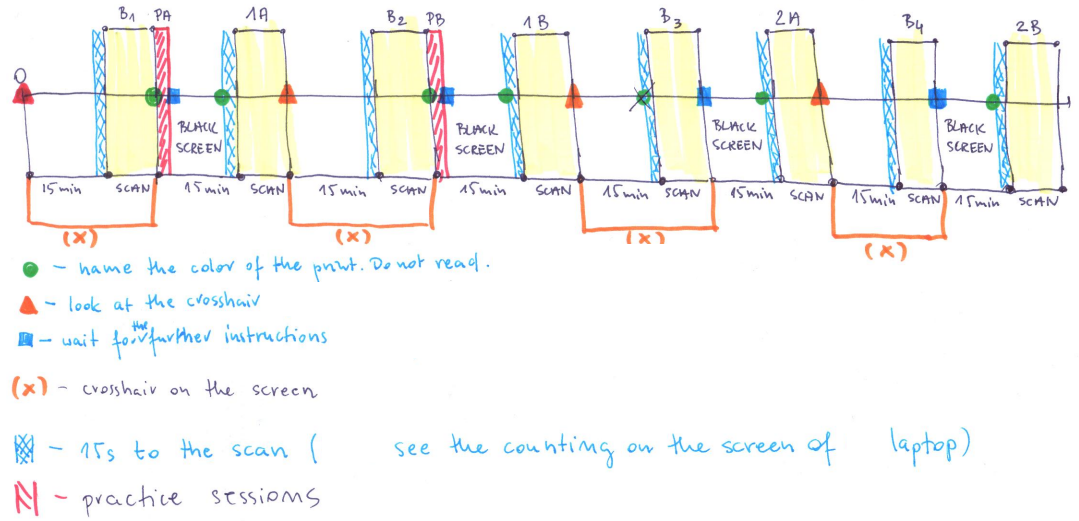 B1 PA 1A B2 PB 1B B3 2A B4 2B
0
BLACK SCREEN BLACK SCREEN BLACK SCREEN BLACK SCREEN
15min SCAN 15min SCAN 15min SCAN 15min SCAN 15min SCAN 15min SCAN 15min SCAN 15min SCAN
(x) (x) (x) (x)
- name the color of the print. Do not read.
- look at the crosshair
- wait for the further instructions
(x) - crosshair on the screen
- 15s to the scan ( see the counting on the screen of laptop)
- practice sessions